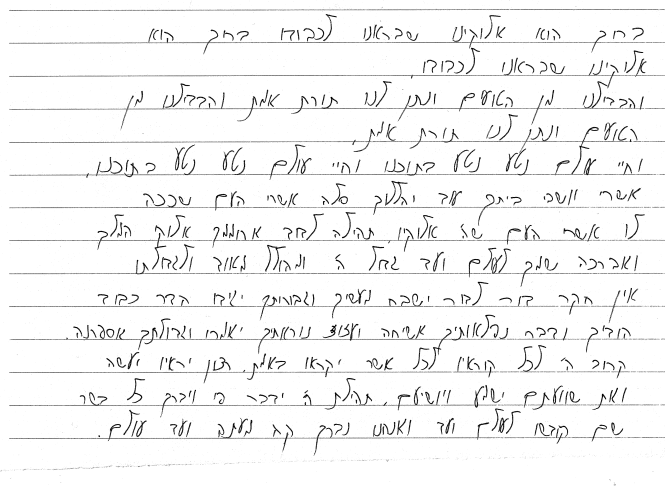 ברוך הוא אלוקינו שבראנו לכבודו ברוך הוא
אלוקינו שבראנו לכבודו.
והבדילנו מן הטועים ונתן לנו תורת אמת והבדילנו מן
הטועים ונתן לנו תורת אמת,
וחיי עולם נטע נטע בתוכנו וחיי עולם נטע נטע בתוכנו,
אשרי יושבי ביתך עוד יהללוך סלה אשרי העם שככה
לו אשרי העם שה' אלוקיו, תהילה לדוד ארוממך אלוקי המלך
ואברכה שמך לעולם ועד גדול ה' ומהולל מאוד ולגדולתו
אין חקר דור לדור ישבח מעשיך וגבורותיך יגידו הדר כבוד
הודיך ודברי נפלאותיך אשיחה ועזוז נוראתיך יאמרו וגדולתך אספרנה.
קרוב ה' לכל קוראיו לכל אשר יקראו באמת. רצון יראיו יעשה
ואת שוועתם ישמע ויושיעם. תהילת ה' ידבר פי ויברך כל בשר
שם קודשו לעולם ועד ואנחנו נברך קה מעתה ועד עולם.